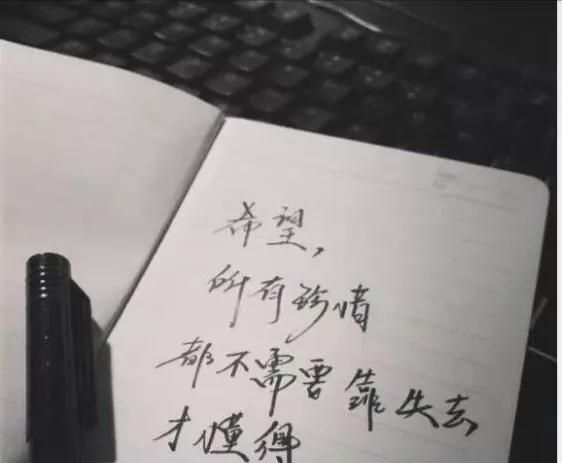 希望，
所有珍惜
都不需要靠失去
才懂得